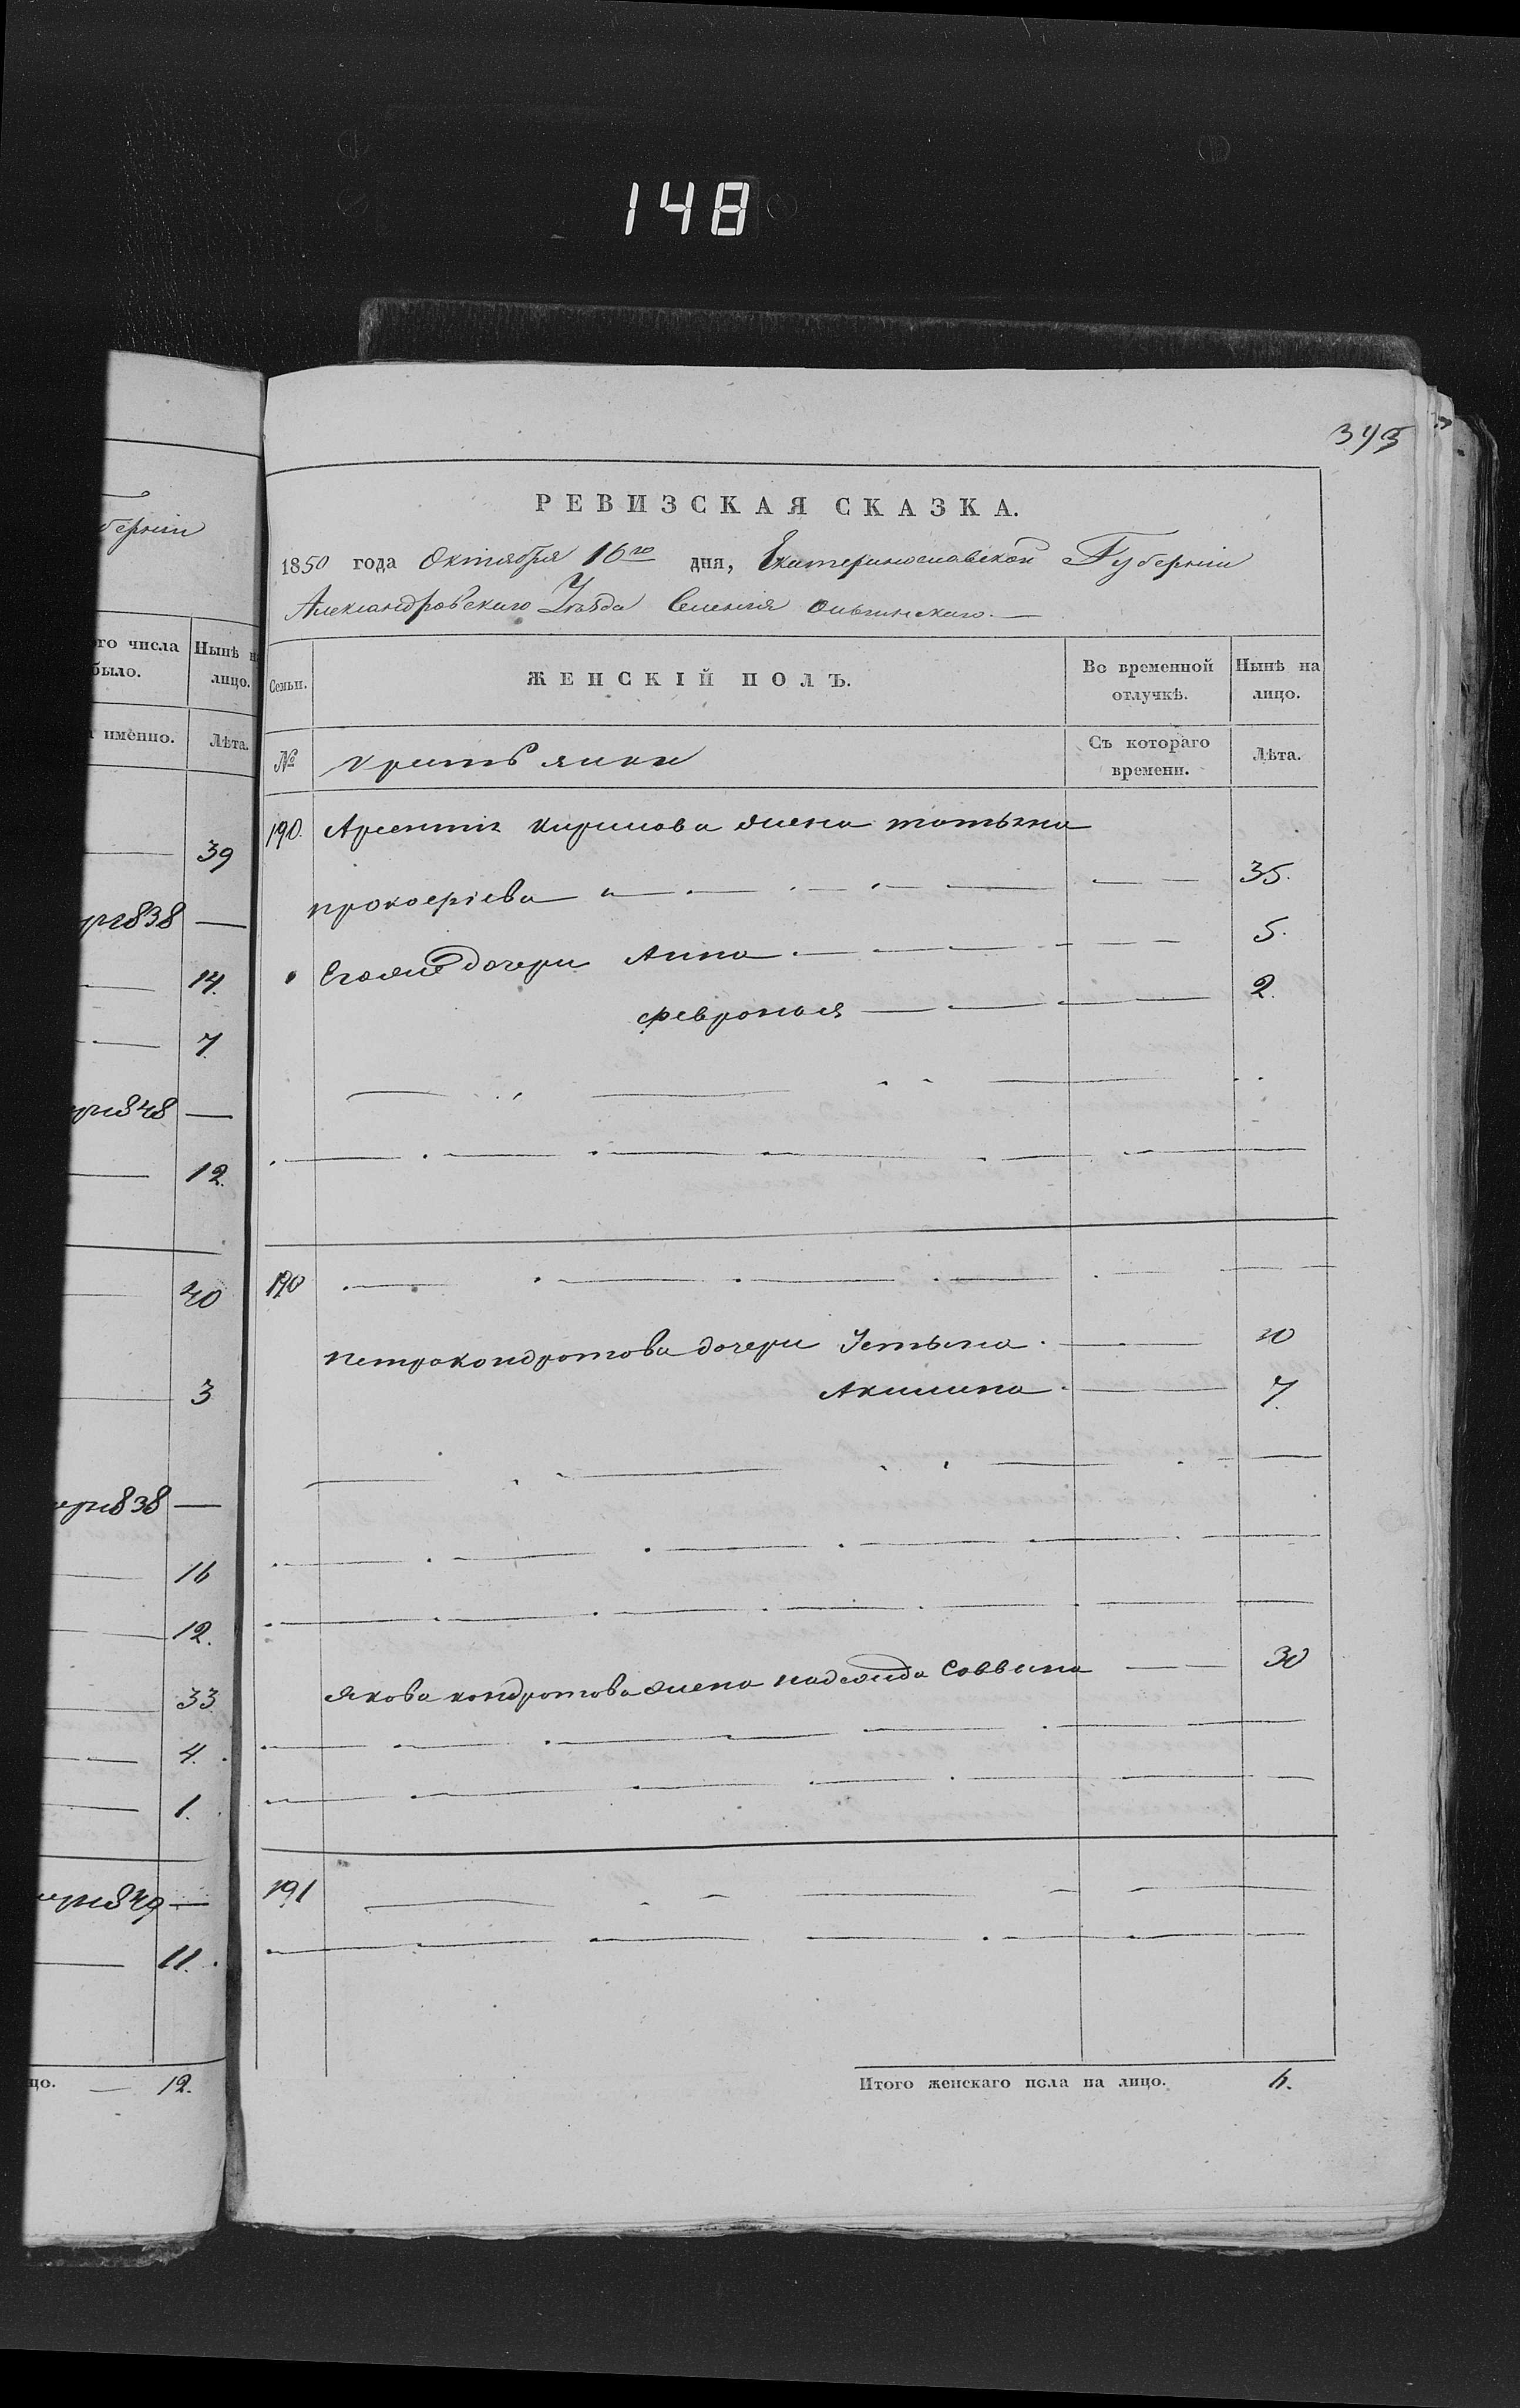 148
393
РЕВИЗСКАЯ СКАЗКА.
1850 года Октября 16го дня, Екатеринославской Губерніи
Александровскаго Уѣзда Селенія Ольгинскаго.
берніи
ого числа
было.
Нынѣ н
лицо.
именно.
Лѣта.
39
838
14.
7.
848
12.
40
3
838
16
12.
33
4.
1.
849
11.
цо. 12.
Семьи.
ЖЕНСКІЙ ПОЛЪ.
Во временной
отлучкѣ.
Нынѣ на
лицо.
№
Крестьянки
Съ котораго
времени.
Лѣта.
190. Арсентія Кирилова жена татьяна
прокофіева 35.
Егоже дочери Анна 5.
февронья 2.
190
петра кондратова дочери Устьина 10
Акилина 7.
якова кондратова жена надежда Саввина 30
191
Итого женскаго пола на лицо. 6.